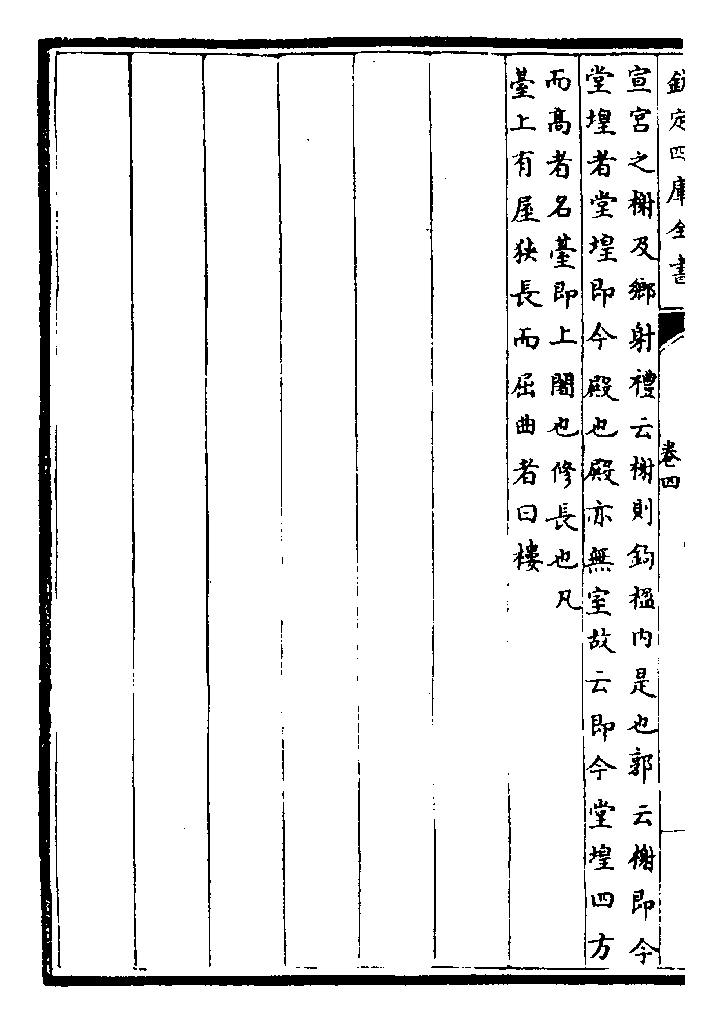 欽定四庫全書
卷四
宣宮之榭及鄉射禮云榭則鈎楹内是也郭云榭即今
堂堭者堂堭即今殿也殿亦無室故云即今堂堭四方
而髙者名臺即上闍也修長也凡
臺上有屋狹長而屈曲者曰樓